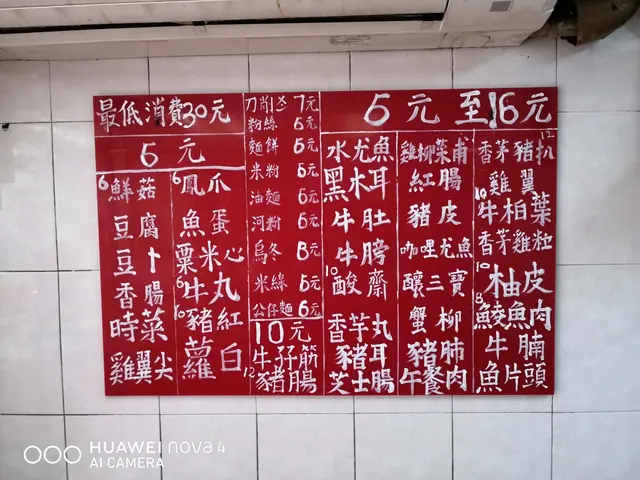 最低消費30元
5元
6鮮菇
豆腐
豆卜
香腸
時菜
雞翼尖
6鳳爪
魚蛋
粟米心
6牛丸
10豬紅
蘿白
刀削 7元
粉絲 6元
麵餅 5元
米粉 5元
油麵 6元
河粉 6元
烏冬 8元
米線 6元
公仔麵 6元
10元
牛孖筋
12豬腸
5元至16元
水尤魚
黑木耳
牛肚
牛膀
10酸齋
香芋丸
豬耳
芝士腸
雞柳菜甫
紅腸
豬皮
咖哩尤魚
釀三寶
蟹柳
豬肺
午餐肉
香茅豬扒12
雞翼
10牛柏葉
香茅雞粒
10柚皮
8鯪魚肉
牛腩
魚片頭
HUAWEI nova 4
AI CAMERA